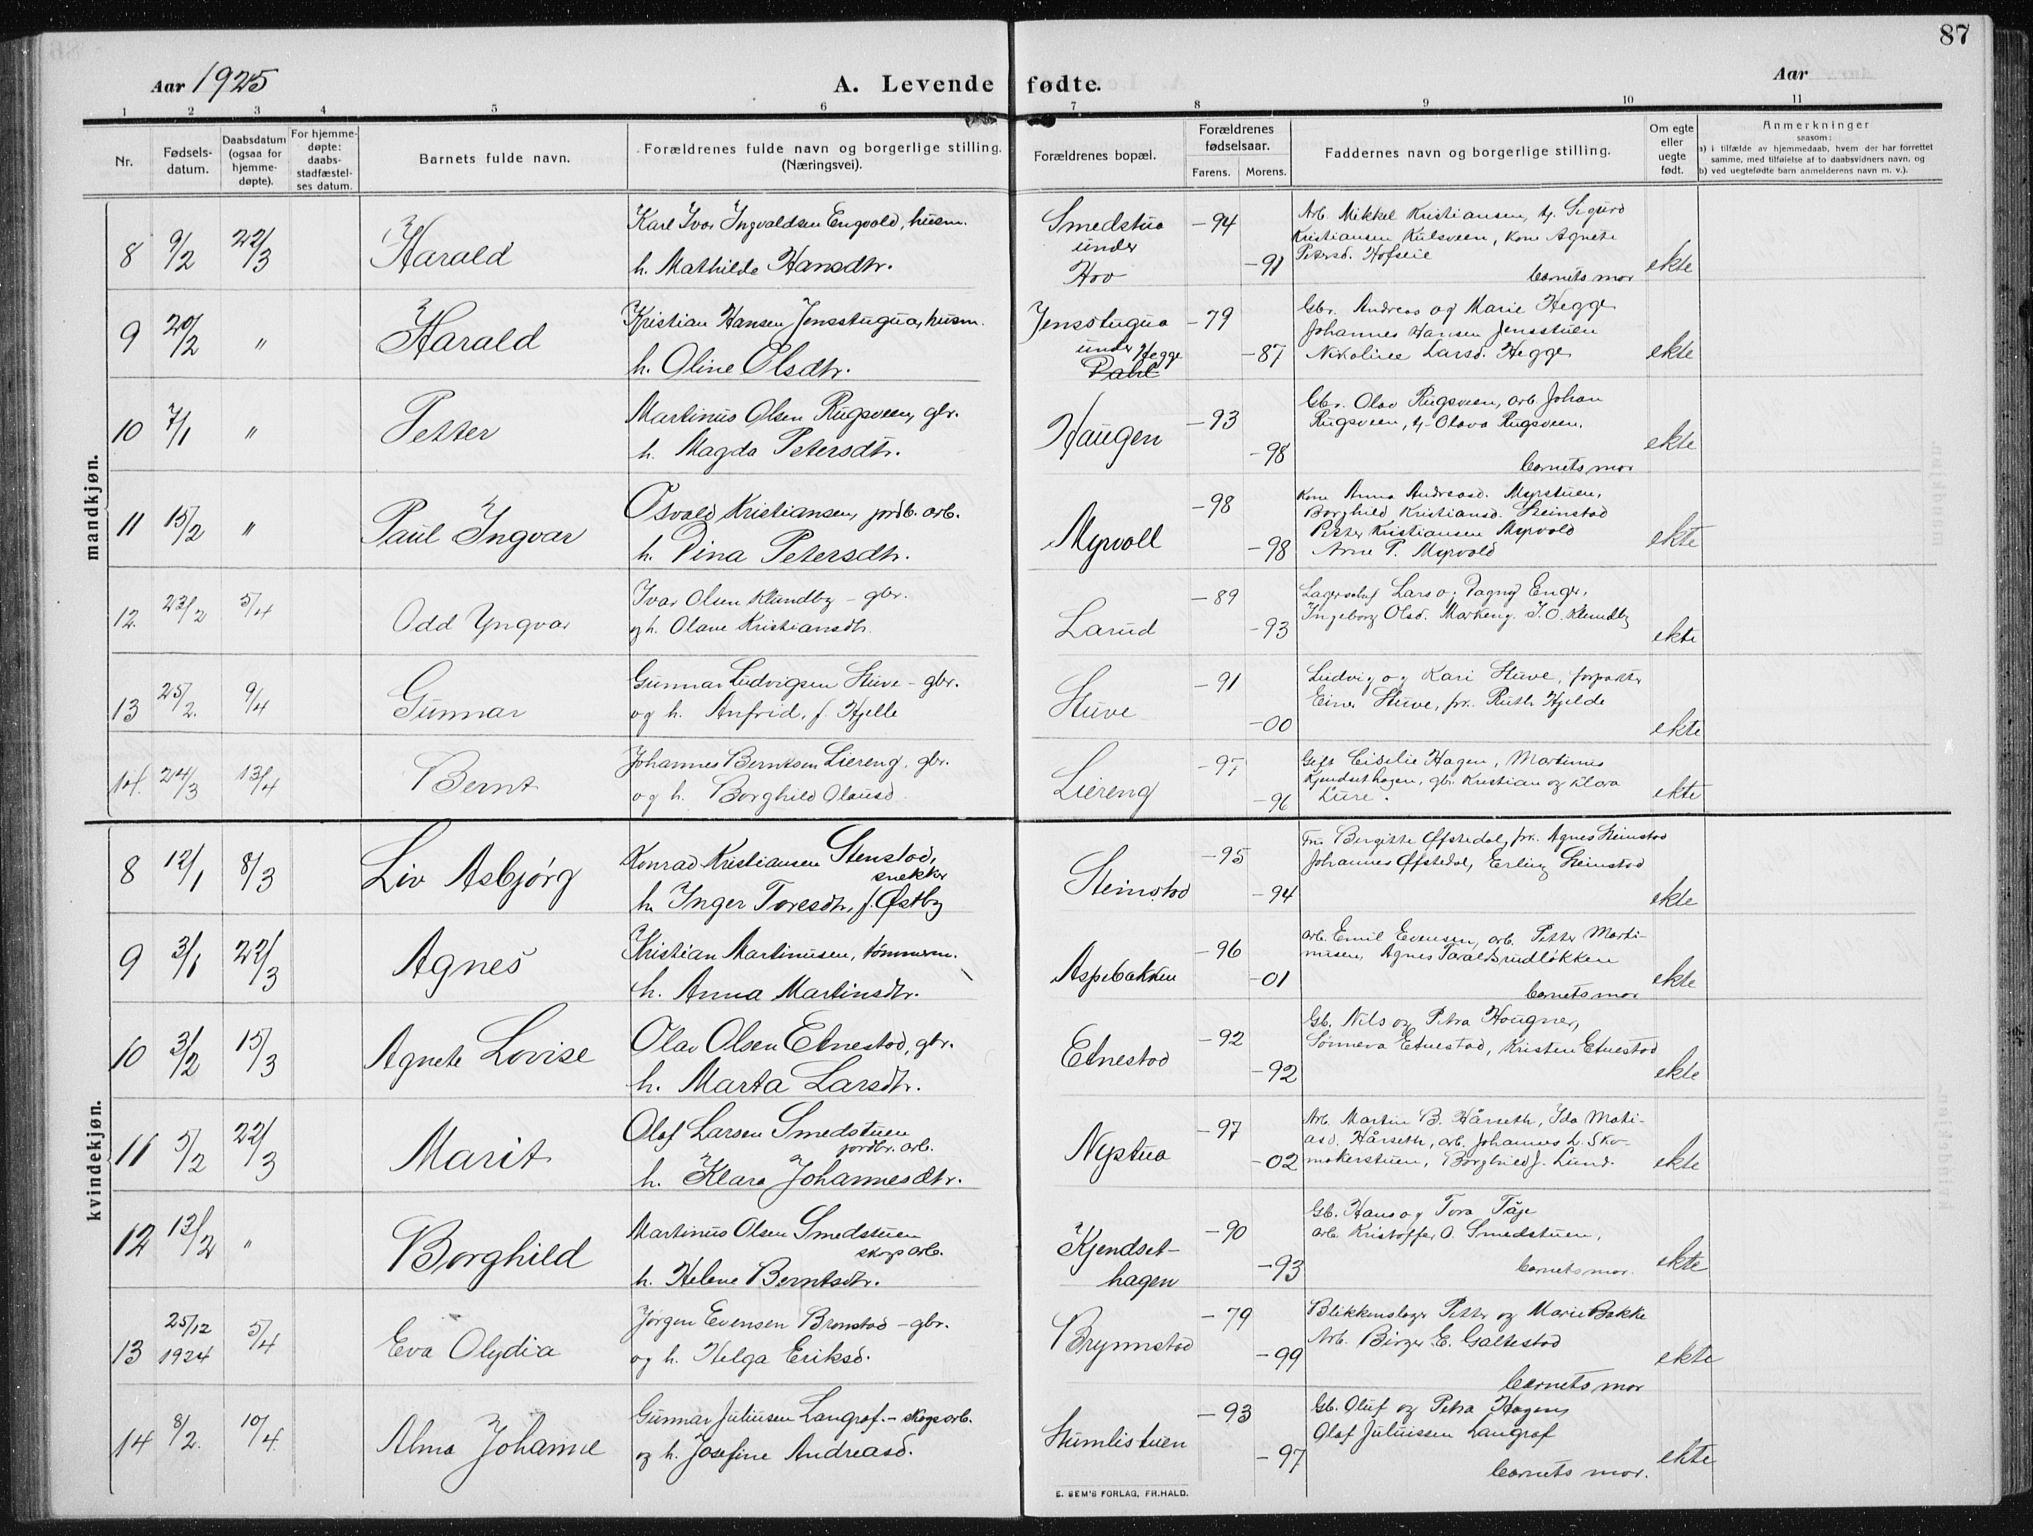 87
Aar 1925
A. Levende fødte.
Aar
1 2 3 4 5 6 7 8 9 10 11
Nr.
Fødsels-
datum.
Daabsdatum
(ogsaa for
hjemme-
døpte).
For hjemme-
døpte:
daabs-
stadfæstel-
ses datum.
Barnets fulde navn.
Forældrenes fulde navn og borgerlige stilling.
(Næringsvei).
Forældrenes bopæl.
Forældrenes
fødselsaar.
Farens. Morens.
Faddernes navn og borgerlige stilling.
Om egte
eller
uegte
født.
Anmerkninger
saasom:
a) i tilfælde av hjemmedaab, hvem der har forrettet
samme, med tilføielse af to daabsvidners navn, og
b) ved uegtefødte barn anmelderens navn m. v.).
mandkjøn.
8 9/2 22/3 Harald
Karl Ivar Ingvaldsen Engvold, husm.
h. Mathilde Hansdtr.
Smedstua
under
Hov
-94
-91
Arb. Mikkel Kristiansen, Sigurd
Kristiansen Kulsveen, kone Agnete
Petersd. Hofseie
barnets mor
ekte
9 20/2 " Harald
Kristian Hansen Jensstugua, husm.
h. Oline Olsdtr.
Jensstugua
under Hegge
-79
-87
Gbr. Andreas og Marie Hegge
Johannes Hansen Jensstuen
Nikoline Larsd. Hegge
ekte
10 7/1 " Petter
Martinus Olsen Rugsveen, gbr.
h. Magda Petersdtr.
Haugen
-93
-98
Gbr. Olav Rugsveen, arb. Johan
Rugsveen, Olava Rugsveen.
barnets mor
ekte
11 15/2 " Paul Ingvar
Osvald Kristiansen, jordb. arb.
h. Dina Petersdtr.
Myrvoll
-98
-98
Kone Anna Andreasd. Myrstuen,
Borghild Kristiansd. Steinstad
Petter Kristiansen Myrvold
Arne P. Myrvold
ekte
12. 23/2 5/4 Odd Yngvar
Ivar Olsen Klundby - gbr.
og h. Olave Kristiansdtr.
Larud
-89
-93
Lars o. Dagny Enger,
Ingeborg Olsd. Markeng. I. O. Klundby
ekte
13 25/2. 9/4 Gunnar
Gunnar Ludvigsen Stuve - gbr.
og h. Anfrid, f. Hjelle
Stuve
-91
-00
Ludvig og Kari Stuve, forpakter
Einar Stuve, frk. Ruth Hjelde
ekte
14. 24/3 13/4 Bernt
Johannes Berntsen Liereng, gbr.
og h. Borghild Olausd.
Liereng
-97
-96
Gift Eisilie Hagen, Martinus
Kjendsethagen, gbr. Kristian og Klara
Lure.
ekte
kvindekjøn.
8 12/1 8/3 Liv Asbjørg
Konrad Kristiansen Stenstad,
snekker
h. Inger Toresdtr, f. Østby
Steinstad
-95
-94
Fru Bergitte Øfstedal, frk. Agnes Steinstad
Johannes Øfstedal, Erling Steinstad
ekte
9 3/1 22/3 Agnes
Kristian Martinusen, tømmerm.
h. Anna Martinsdtr.
Aspebakken
-96
-01
arb. Emil Evensen, arb. Petter Marti-
nusen, Agnes Taraldsrudløkken
barnets mor
ekte
10 3/2 15/3 Agnete Lovise
Olav Olsen Etnestad, gbr.
h. Marta Larsdtr.
Etnestad
-92
-92
Gb. Nils og Petra Hougner,
Sønneva Etnestad, Kristen Etnestad
ekte
11 5/2 22/3 Marit
Olaf Larsen Smedstuen
jordbr. arb.
h. Klara Johannesdtr.
Nystua
-97
-02
Arb. Martin B. Hårseth, Ida Mati-
asd. Hårseth, arb. Johannes L. Sko-
makerstuen, Borghild J. Lund.
ekte
12 13/2 " Borghild
Martinus Olsen Smedstuen
skogsarb.
h. Helene Berntsdtr.
Kjendset-
hagen
-90
-93
Gb. Hans og Tora Tåje
arb. Kristoffer O. Smedstuen,
barnets mor.
ekte
13 25/12 1924 5/4 Eva Olydia
Jørgen Evensen Brenstad - gbr.
og h. Helga Eriksd.
Brynnstad
-79
-99
Blikkenslager Petter og Marie Bakke
Arb. Birger E. Galtestad
barnets mor
ekte
14 8/2. 10/4. Alma Johanne
Gunnar Juliusen Langraf. - skogsarb.
og h. Josefine Andreasd.
Stumlistuen
-93
-97
Gb. Oluf og Petra Hagen,
Olaf Juliussen Langraf
barnets mor.
ekte
E. SEM'S FORLAG, FR.HALD.